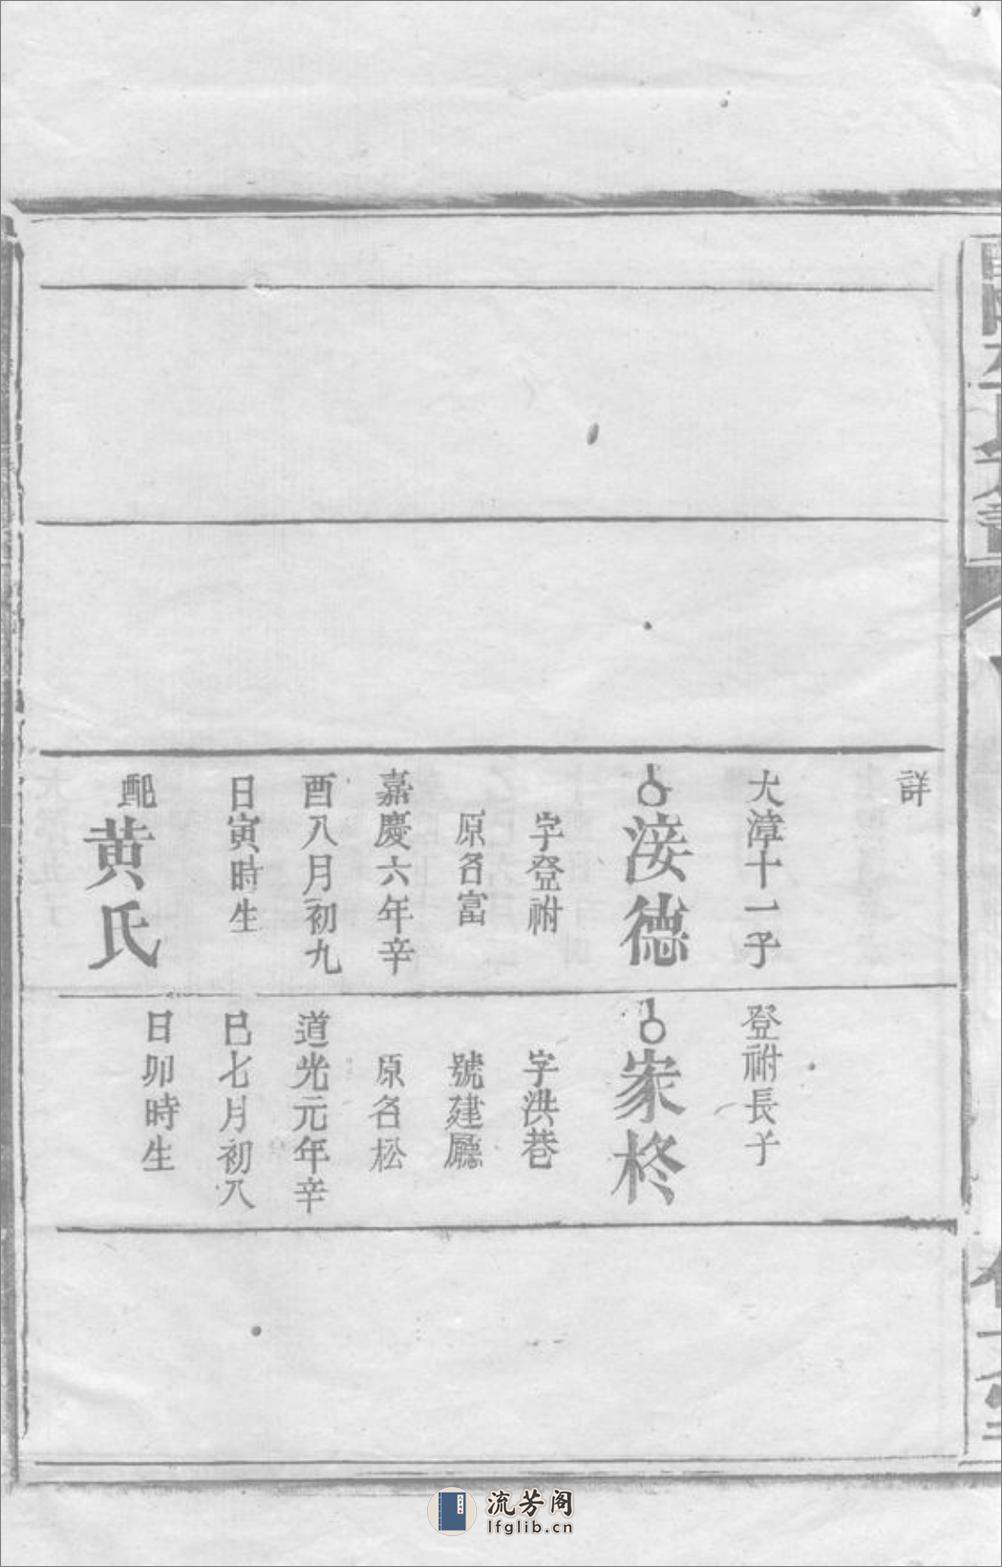 詳
大漳十一子
淁德
字登祔
原名富
嘉慶六年辛
酉八月初九
日寅時生
配
黄氏
登祔長子
家柊
字洪巷
號建廳
原名松
道光元年辛
巳七月初八
日卯時生
流芳阁
lfglib.cn